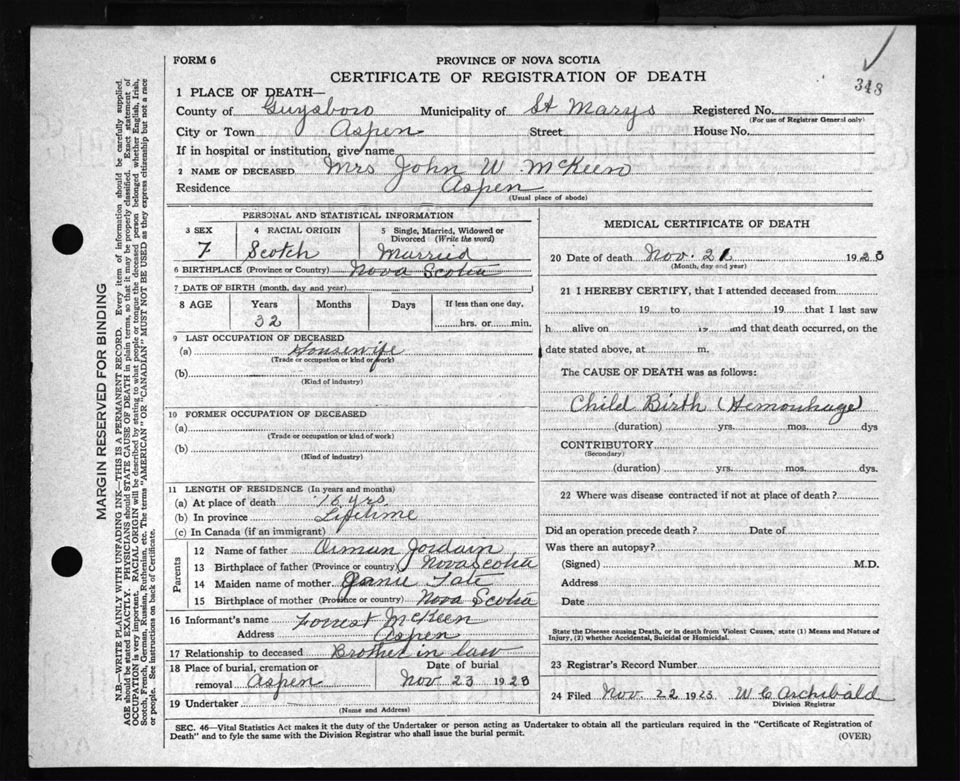 348
FORM 6
PROVINCE OF NOVA SCOTIA
CERTIFICATE OF REGISTRATION OF DEATH
1 PLACE OF DEATH—
County of Guysboro Municipality of St Marys Registered No.
(For use of Registrar General only)
City or Town Aspen Street House No.
If in hospital or institution, give name
2 NAME OF DECEASED Mrs John W. McKeen
Residence Aspen
(Usual place of abode)
PERSONAL AND STATISTICAL INFORMATION
3 SEX 4 RACIAL ORIGIN 5 Single, Married, Widowed or Divorced (Write the word)
F Scotch Married
6 BIRTHPLACE (Province or Country) Nova Scotia
7 DATE OF BIRTH (month, day and year)
8 AGE Years Months Days If less than one day,
32 hrs. or min.
9 LAST OCCUPATION OF DECEASED
(a) Housewife
(Trade or occupation or kind of work)
(b)
(Kind of industry)
10 FORMER OCCUPATION OF DECEASED
(a)
(Trade or occupation or kind of work)
(b)
(Kind of industry)
11 LENGTH OF RESIDENCE (In years and months)
(a) At place of death yrs
(b) In province Lifetime
(c) In Canada (if an immigrant)
Parents
12 Name of father Jordain
13 Birthplace of father (Province or country) Nova Scotia
14 Maiden name of mother
15 Birthplace of mother (Province or country) Nova Scotia
16 Informant's name Forrest McKeen
Address Aspen
17 Relationship to deceased Brother in law
18 Place of burial, cremation or Date of burial
removal Aspen Nov 23 1923
19 Undertaker
(Name and Address)
MEDICAL CERTIFICATE OF DEATH
20 Date of death Nov. 192
(Month, day and year)
21 I HEREBY CERTIFY, that I attended deceased from
19 to 19 that I last saw
h alive on 19 and that death occurred, on the
date stated above, at m.
The CAUSE OF DEATH was as follows:
Child Birth (Hemorrhage)
(duration) yrs. mos. dys
CONTRIBUTORY
(Secondary)
(duration) yrs. mos. dys.
22 Where was disease contracted if not at place of death?
Did an operation precede death? Date of
Was there an autopsy?
(Signed) M.D.
Address
Date
State the Disease causing Death, or in death from Violent Causes, state (1) Means and Nature of
Injury, (2) whether Accidental, Suicidal or Homicidal.
23 Registrar's Record Number
24 Filed Nov. 22 1923 W C Archibald
Division Registrar
SEC. 46—Vital Statistics Act makes it the duty of the Undertaker or person acting as Undertaker to obtain all the particulars required in the "Certificate of Registration of
Death" and to fyle the same with the Division Registrar who shall issue the burial permit.
(OVER)
MARGIN RESERVED FOR BINDING
N.B.—WRITE PLAINLY WITH UNFADING INK—THIS IS A PERMANENT RECORD. Every item of information should be carefully supplied.
AGE should be stated EXACTLY. PHYSICIANS should STATE CAUSE OF DEATH in plain terms, so that it may be properly classified. Exact statement of
OCCUPATION is very important. RACIAL ORIGIN will be described by stating to what people or tongue the deceased person belonged whether English, Irish,
Scotch, French, German, Russian, Ruthenian, etc. The terms "AMERICAN" OR "CANADIAN" MUST NOT BE USED as they express citizenship but not a race
or people. See instructions on back of Certificate.